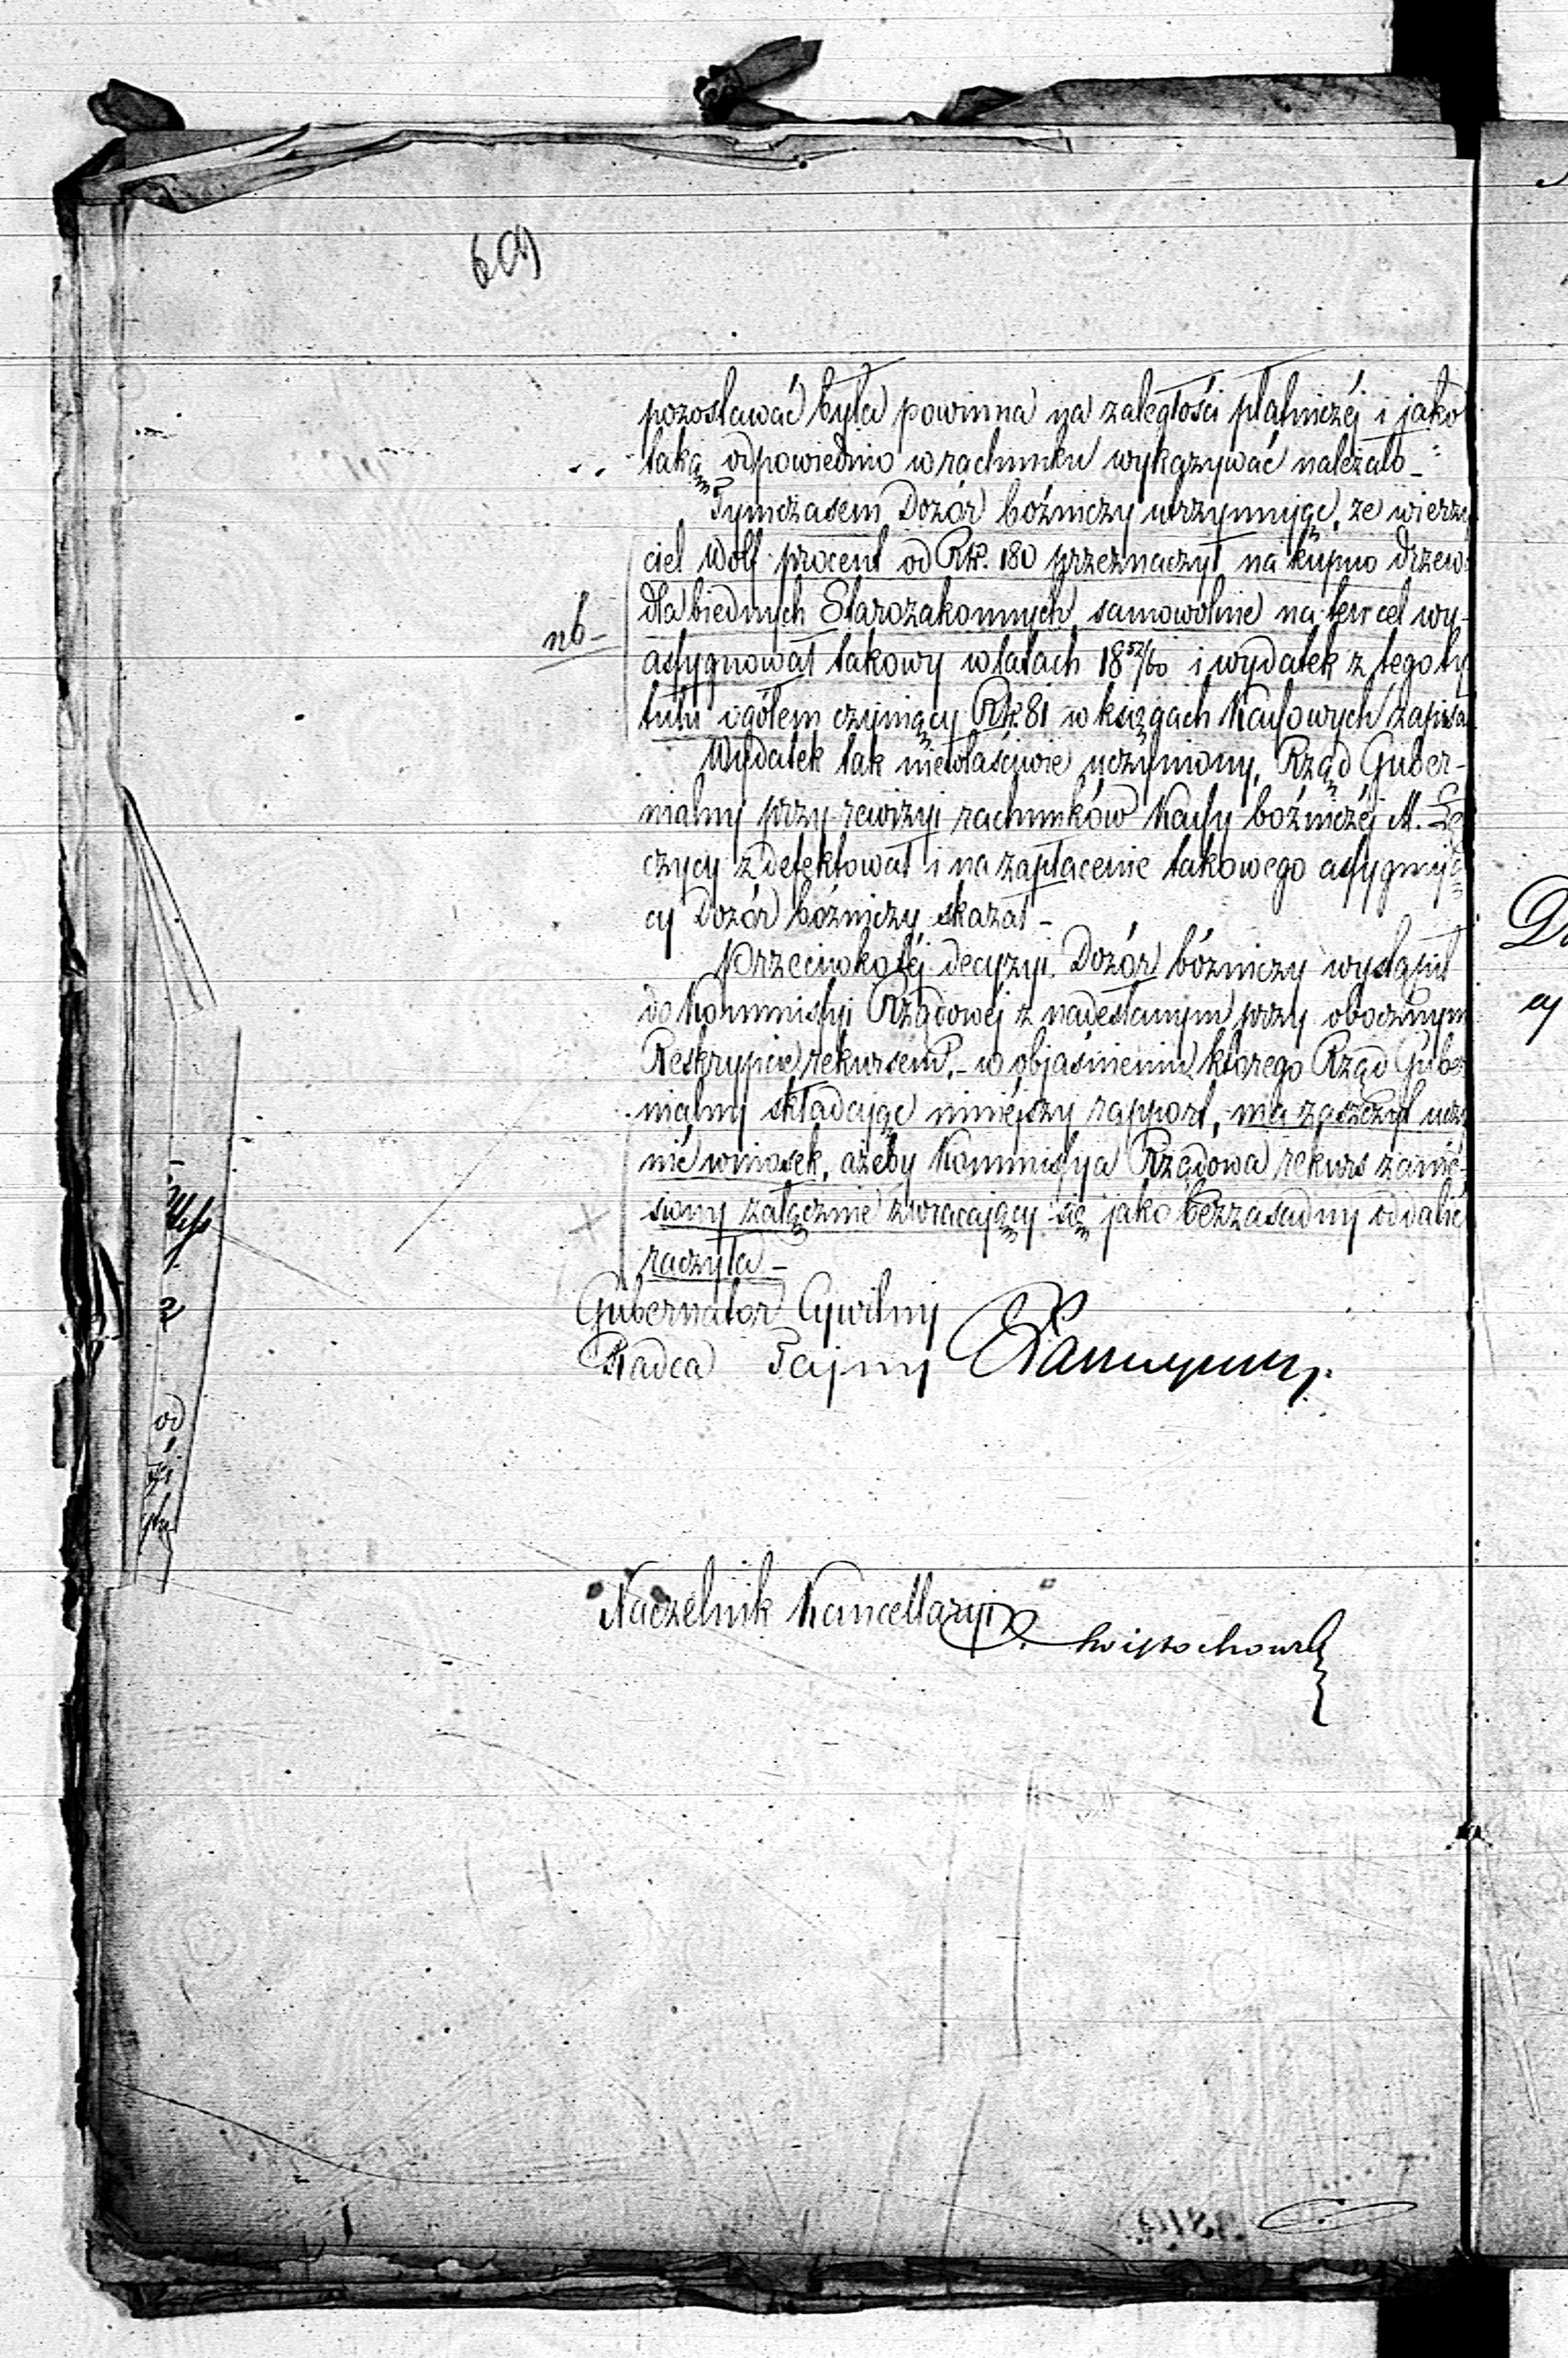 pozostawać była powinna na zaległości płatniczéj i jako
taką odpowiednio w rachunku wykazywać należało –
Tymczasem Dozór bóźniczy utrzymując, że wierzy
ciel Wolf procent od Rsr. 180 przeznaczył na kupno drzewa
dla biednych Starozakonnych, samowolnie na ten cel wy-
nb –
assygnował takowy w latach 18 52/60 i wydatek z tego ty
tułu ogółem czyniący Rsr. 81 w księgach Kassowych zapisał
Wydatek tak niewłaściwie uczyniony, Rząd Guber-
nialny przy rewizyi rachunków Kassy bóźniczéj M. Łę
czycy zdefektował i na zapłacenie takowego assygnują
cy Dozór bóźniczy skazał –
Przeciwko téj decyzyi Dozór bóźniczy wystąpił
do Kommissyi Rządowéj z nadesłanym przy obocznym
Reskrypcie rekursem, – w objaśnieniu którego Rząd Guber
nialny składając niniejszy rapport, ma zaszczyt uczy
nić wniosek, ażeby Kommissya Rządowa rekurs zanie-
siony załącznie zwracający się jako bezzasadny oddalić
raczyła –
Gubernator Cywilny
Radca Tajny
Naczelnik Kancellaryi
Świętochowski
od